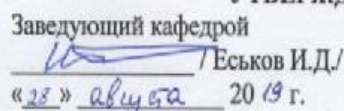 Заведующий кафедрой
/ Еськов И.Д./
«28» августа 2019 г.